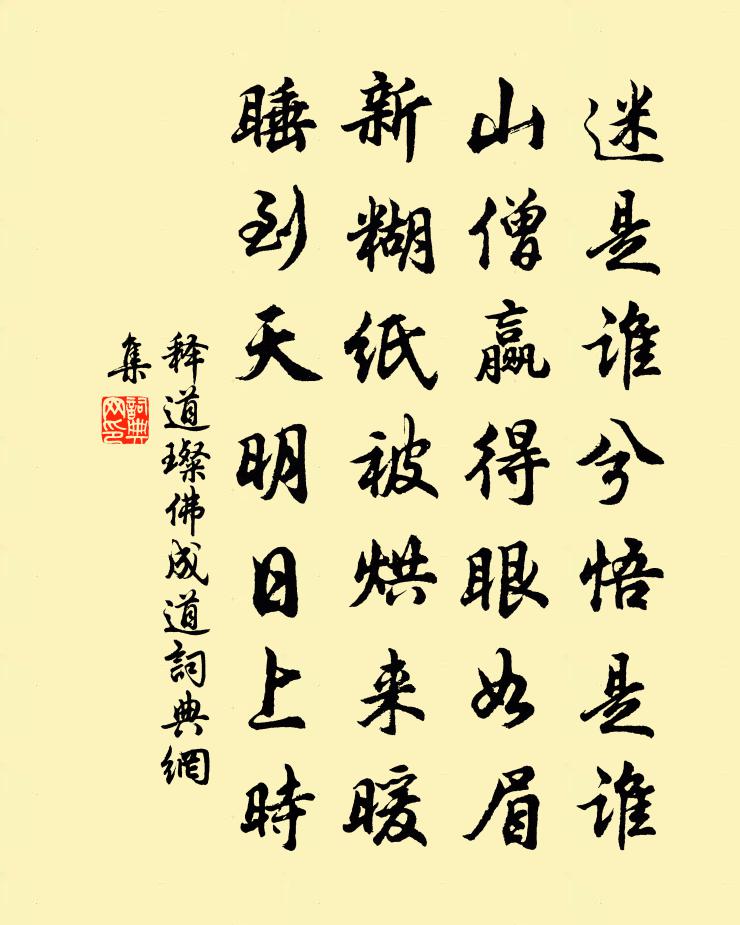 迷是谁兮悟是谁
山僧赢得眼如眉
新糊纸被烘来暖
睡到天明日上时
释道璨佛成道詞典網
集
詞典
网印